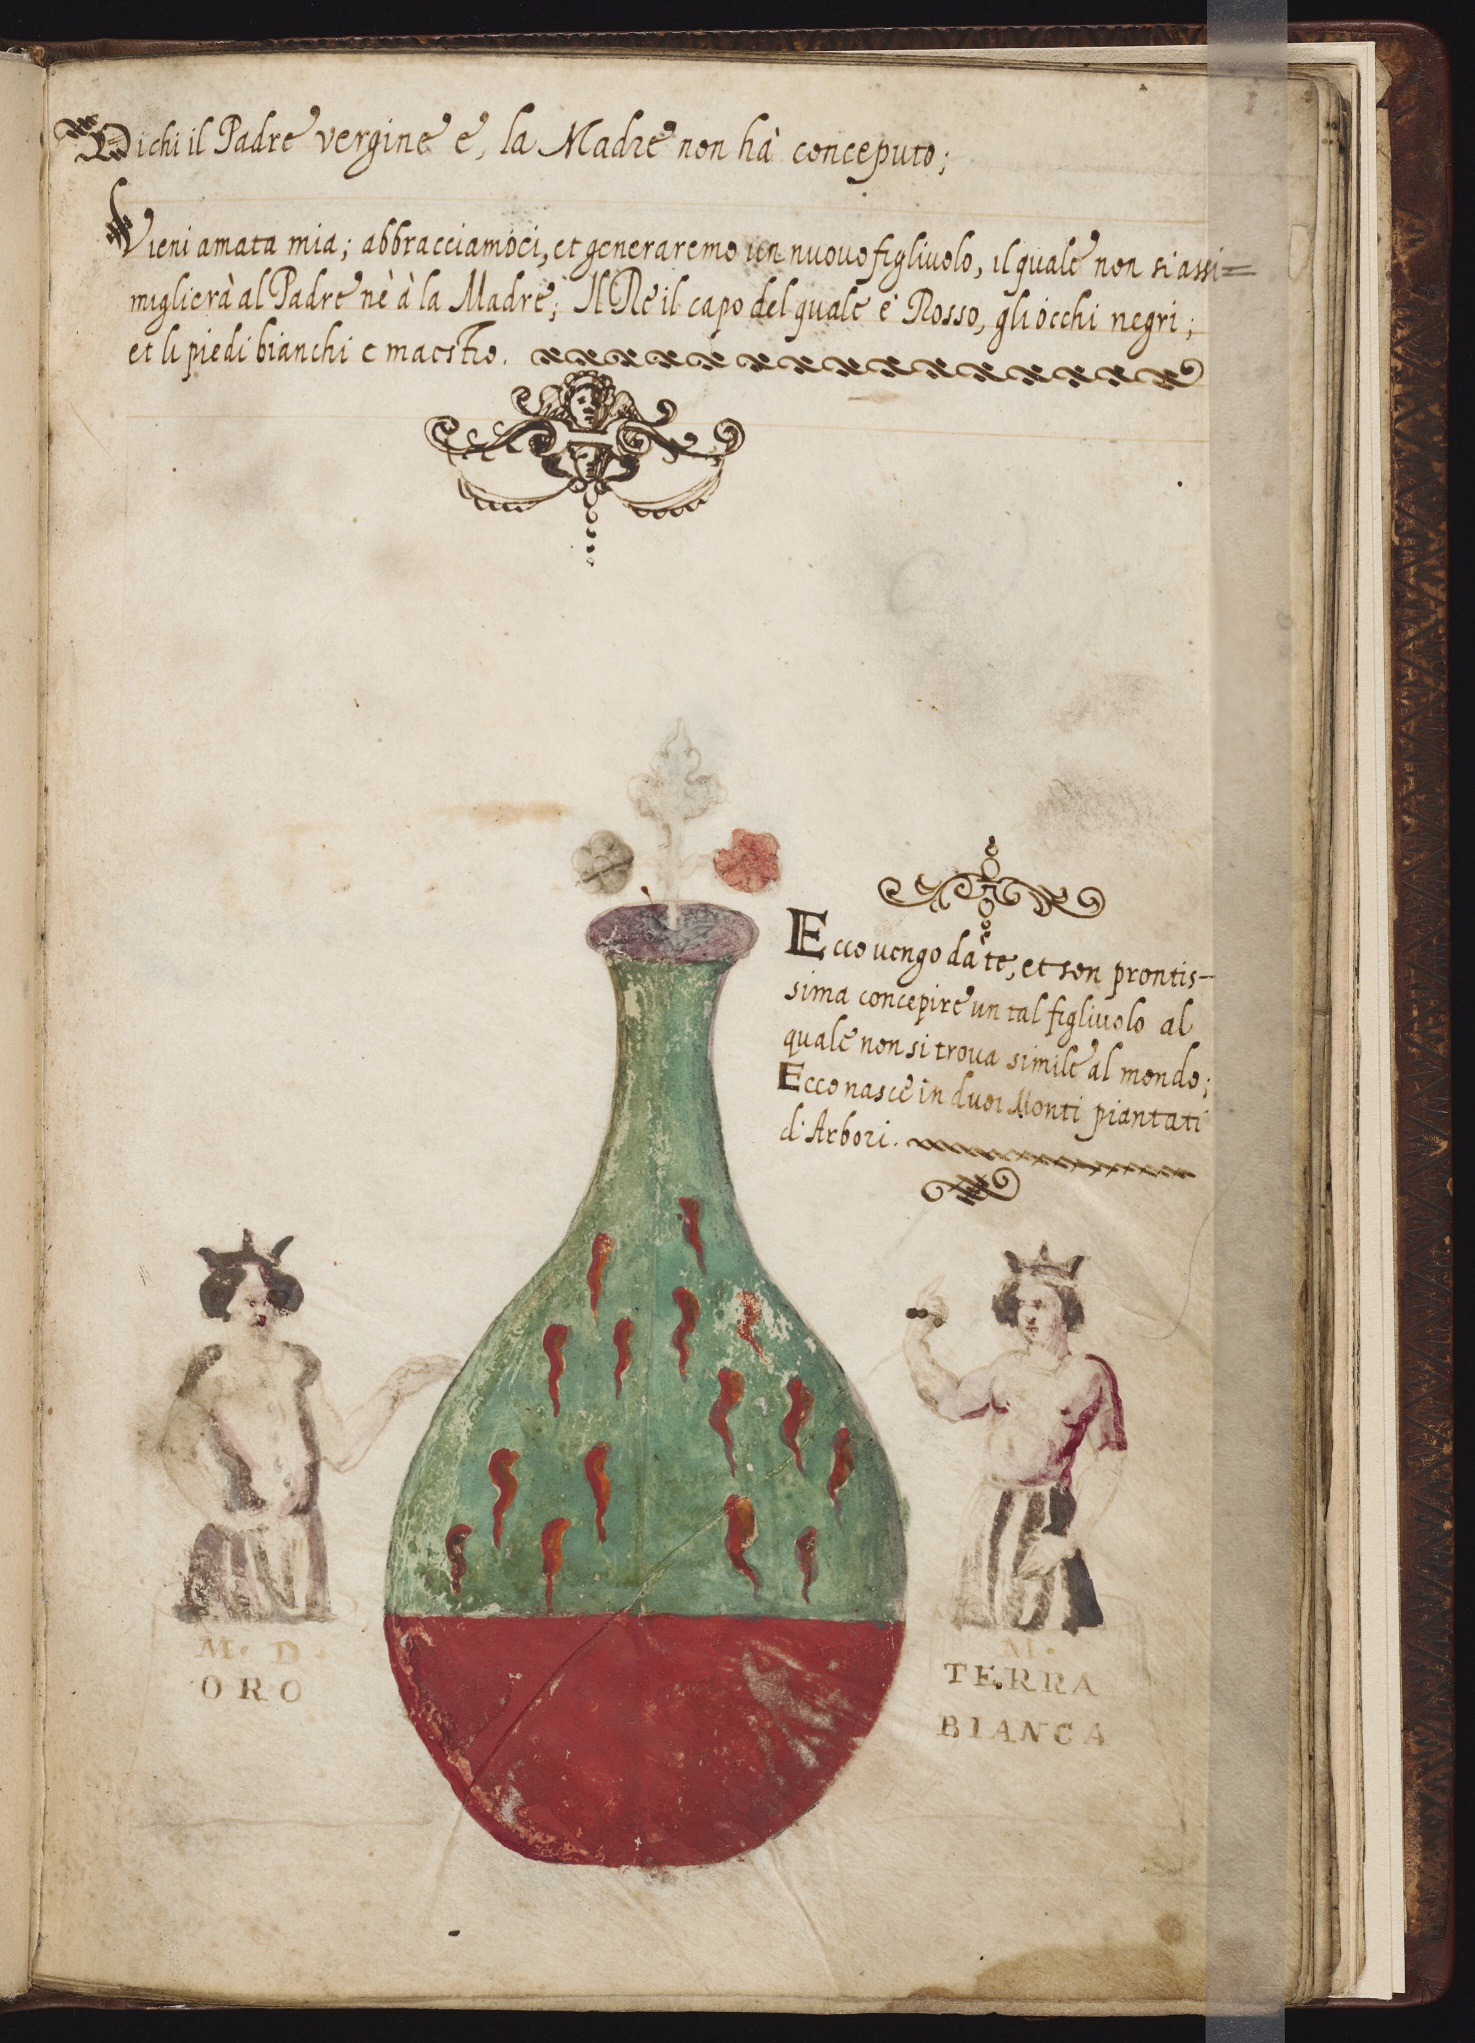 Di chi il Padre vergine è, la Madre non hà conceputo;
Vieni amata mia; abbracciamoci, et generaremo un nuouo figliuolo, il quale non si assi=
miglierà al Padre nè à la Madre; Il Re il capo del quale è Rosso, gli òcchi negri;
et li piedi bianchi e maestro.
Ecco uengo da te, et son prontis-
sima concepire un tal figliuolo al
quale non si troua simile al mondo;
Ecco nasce in duoi Monti piantati
d'Arbori.
M. D.
ORO
M.
TERRA
BIANCA
1